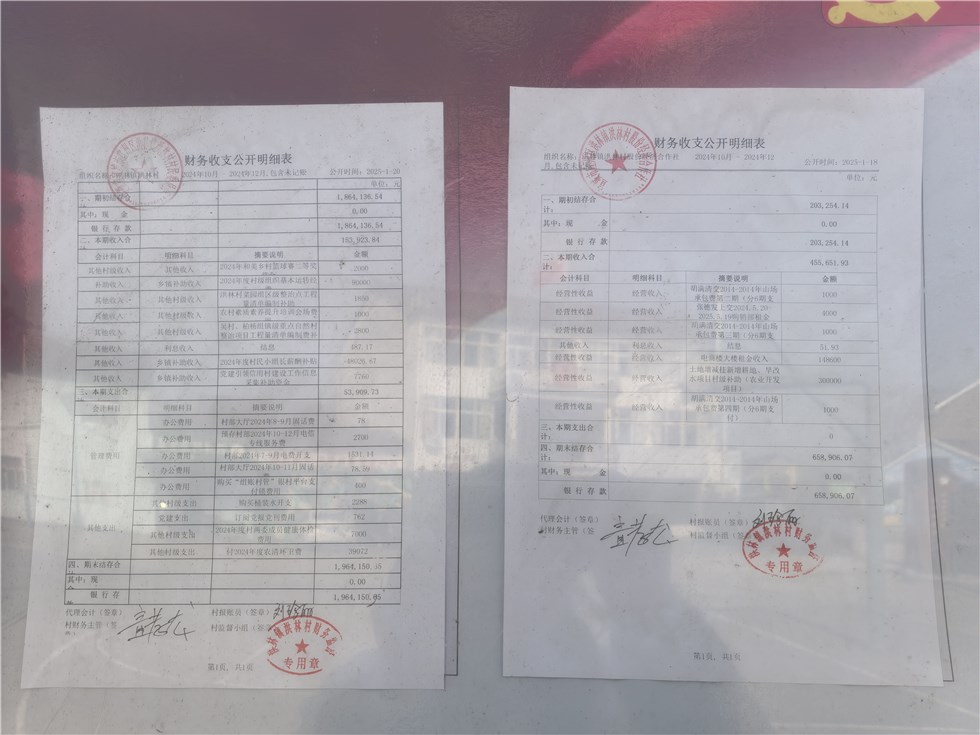 财务收支公开明细表
2024年10月 2024年12月, 包含未记账 公开时间: 2025-1-20
单位: 元
一、期初结存合 1,864,136.54
其中: 现 金 0.00
银 行 存 款 1,864,136.54
二、本期收入合 153,923.84
会计科目 明细科目 摘要说明 金额
其他村级收入 其他收入 2000
补助收入 乡镇补助收入 90000
其他收入 其他村级收入 洪林村 工程量清单编制补助
其他收入 其他村级收入 1000
其他收入 其他村级收入 2800
其他收入 利息收入 结息 487.17
其他收入 乡镇补助收入 2024年度村民小组长薪酬补贴
其他收入 乡镇补助收入 党建引领信用村建设工作信息采集补助资金 7760
三、本期支出合 53,909.73
会计科目 明细科目 摘要说明 金额
管理费用
办公费用 村部大厅2024年8-9月固话费 78
办公费用 预存村部2024年10-12月电信专线服务费 2700
办公费用 村部2024年7-9月电费开支 1531.14
办公费用 村部大厅2024年10-11月固话
办公费用 400
其他支出
其他村级支出 购买桶装水开支
党建支出 订阅党报党刊费用 762
其他村级支出 2024年度村两委成员健康体检费用 7000
其他村级支出 村2024年度农清环卫费 39072
四、期末结存合 1,964,150.65
其中: 现 0.00
银 行 存 1,964,150.65
代理会计（签章） 村报账员（签章）
村财务主管（签章） 村监督小组（签章
专用章
第1页, 共1页
财务收支公开明细表
组织名称: 洪林镇洪林村股份经济合作社 2024年10月 - 2024年12月, 包含未记账 公开时间: 2025-1-10
单位: 元
一、期初结存合计: 203,254.14
其中: 现 金 0.00
银 行 存 款 203,254.14
二、本期收入合计: 455,651.93
会计科目 明细科目 摘要说明 金额
经营性收益 经营收入 胡满清交2014-2014年山场承包费第二期（分6期支 1000
经营性收益 经营收入 4000
经营性收益 经营收入 胡满清交2014-2014年山场承包费第三期（分6期支 1000
其他收入 利息收入 结息 51.93
经营性收益 经营收入 电商楼大楼租金收入 148600
经营性收益 经营收入 土地增减挂新增耕地、旱改水项目村级补助（农业开发项目） 300000
经营性收益 经营收入 胡满清交2014-2014年山场承包费第四期（分6期支付） 1000
三、本期支出合计: 0
四、期末结存合计: 658,906.07
其中: 现 金 0.00
银 行 存 款 658,906.07
代理会计（签章） 村报账员（签章）
村财务主管（签 村监督小组（签
洪林镇洪林村财务监督
专用章
第1页, 共1页